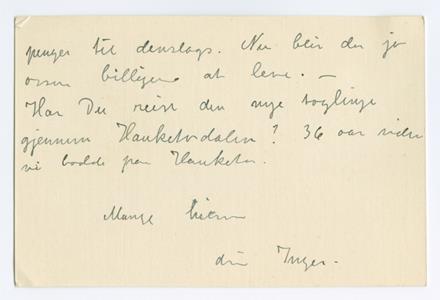 penger til denslags. Nu blir du jo
billigere at leve. –
Har Du reist den nye toglinje
gjennem Hauketodalen? 36 aar siden
vi bodde paa Hauketo.
Mange hilsen
din Inger.